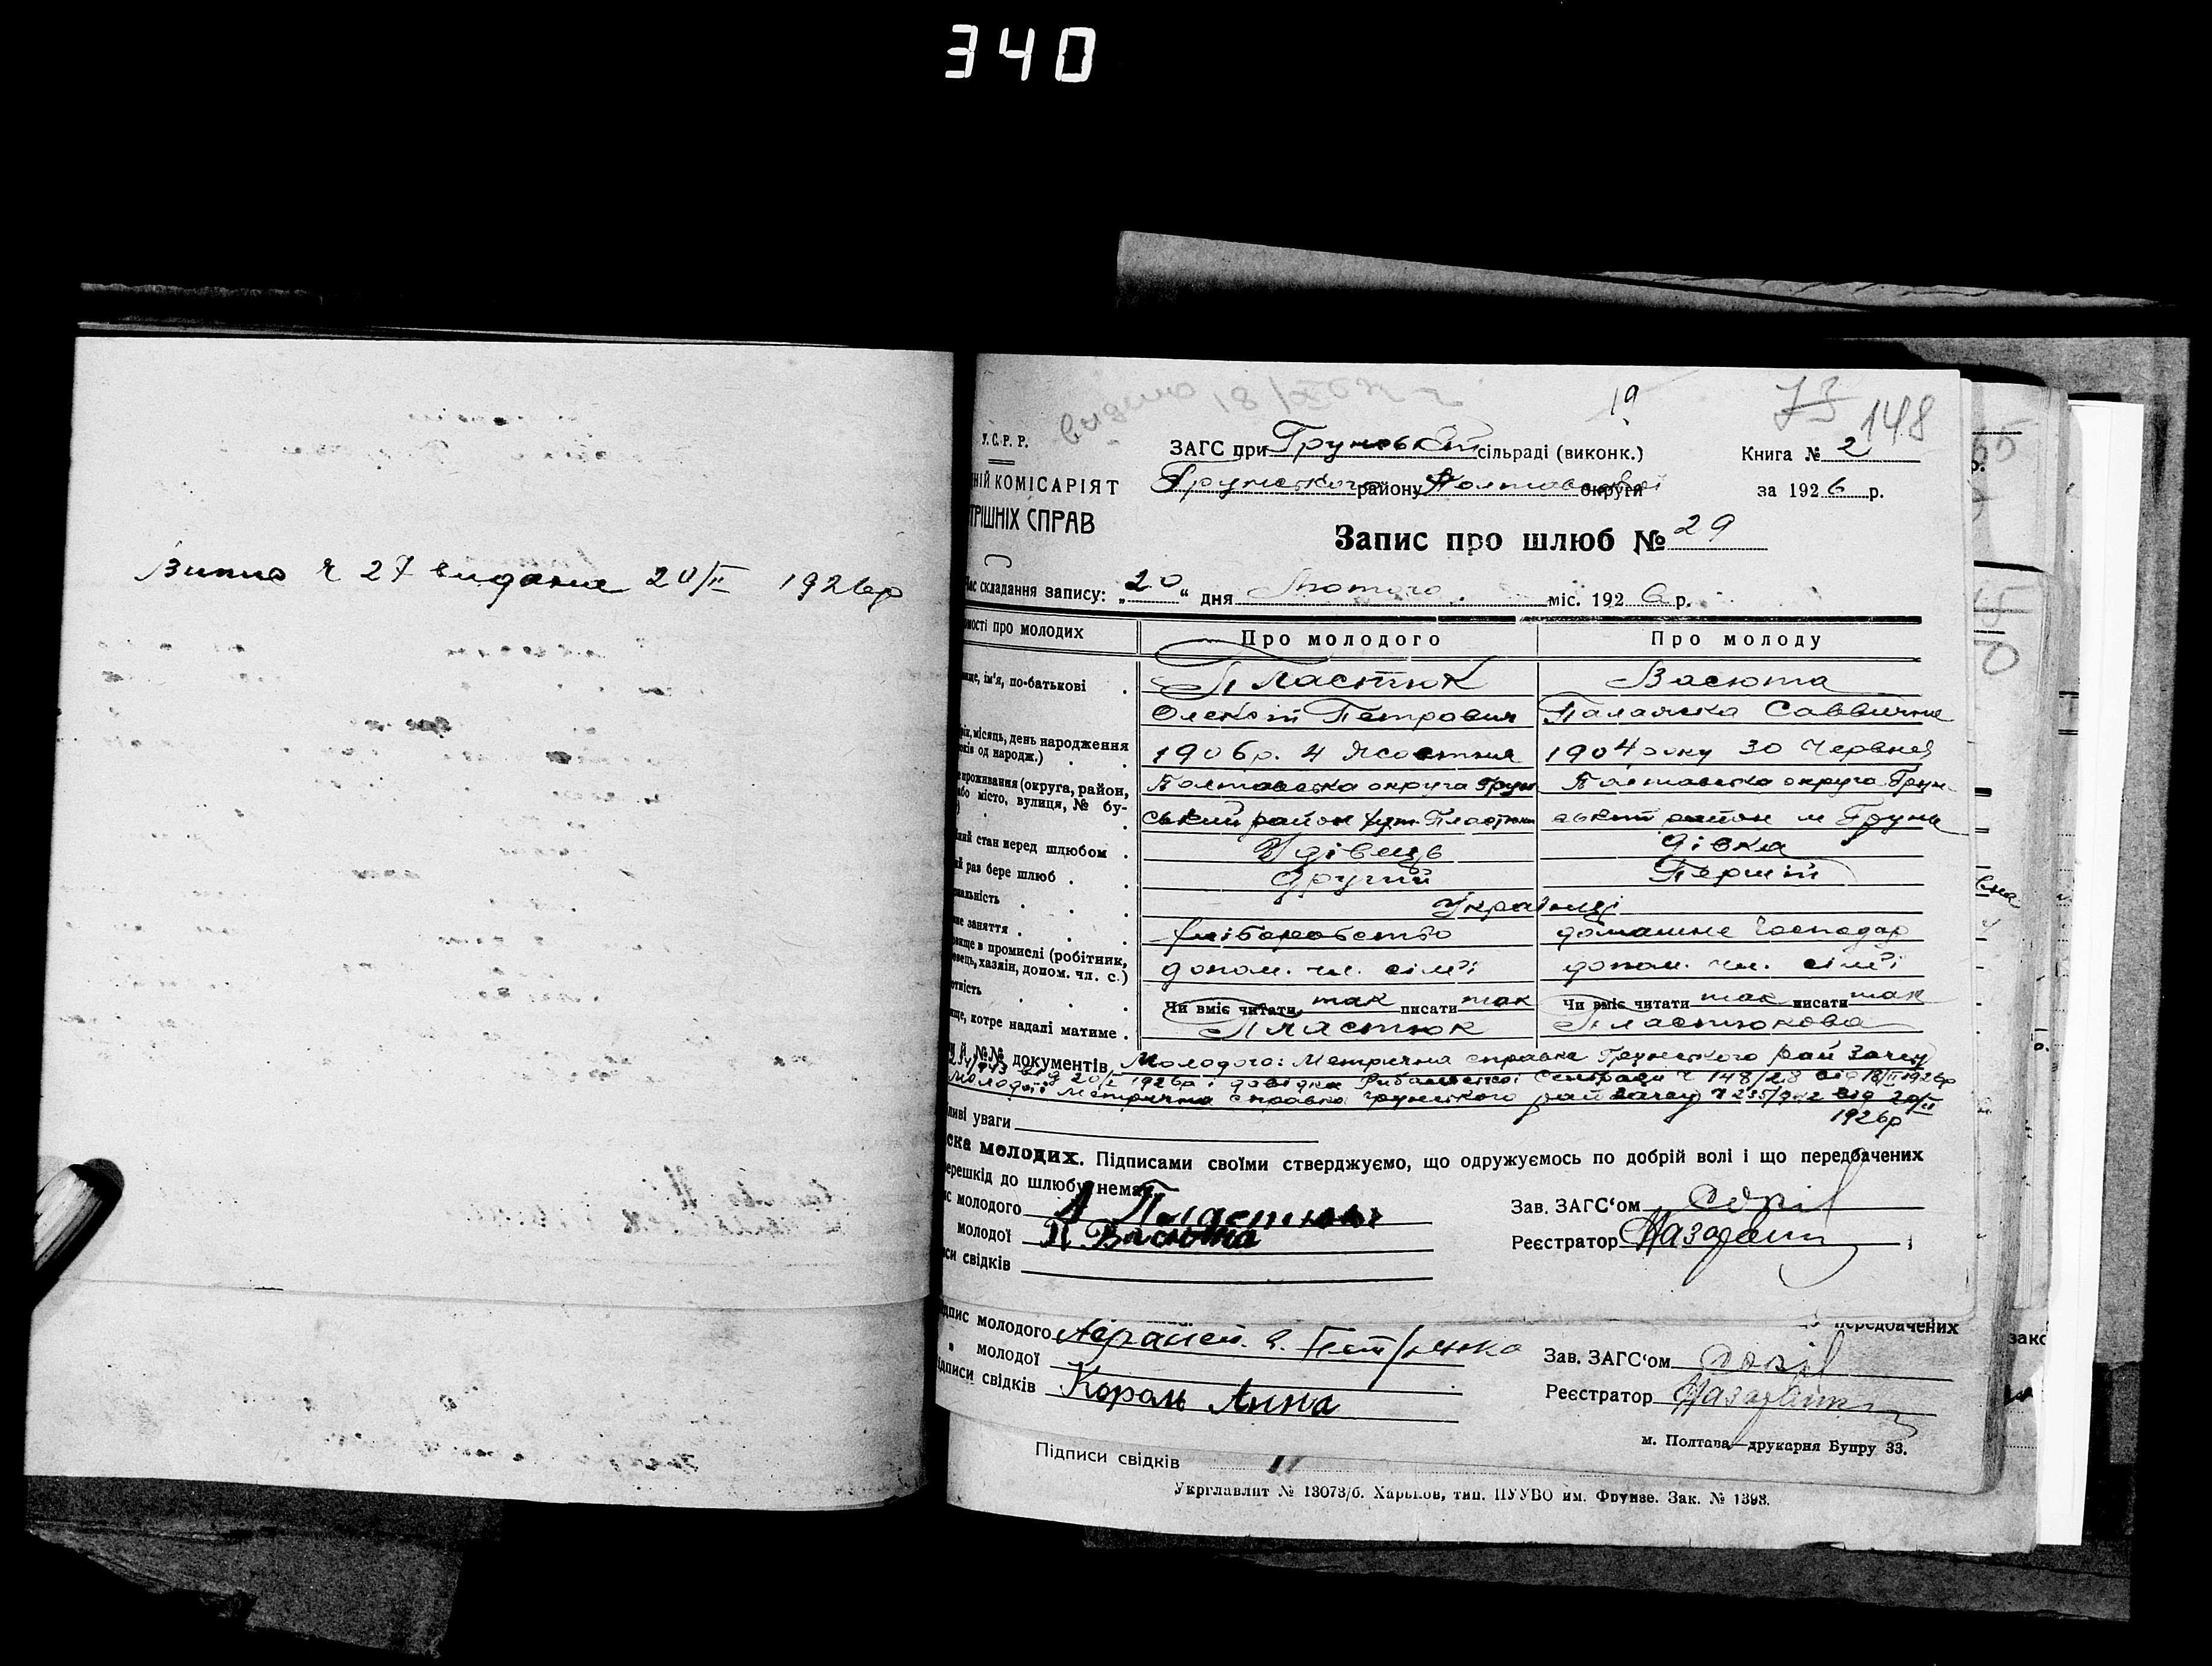 340
Випис ч 27 видана 20/II 1926р
видано 18/
19
73 148
У.С.Р.Р.
НІЙ КОМІСАРІЯТ
ТРІШНІХ СПРАВ
ЗАГС при Грунській сільраді (виконк.)
Грунського району Полтавської округи
Книга № 2
за 1926 р.
Запис про шлюб № 29
ас складання запису: „20“ дня Лютого міс. 1926 р.
мості про молодих Про молодого Про молоду
ще, ім'я, по-батькові Пластюк Васюта
Олексій Петрович Палажка Саввична
рік, місяць, день народження
років од народж.) 1906р. 4 Жовтня 1904 року 30 Червня
е проживання (округа, район,
або місто, вулиця, № бу- Полтавська округа Грун Полтавська округа Грун-
ський район хут. Пластюки ський район м Грунь
ний стан перед шлюбом Удівець дівка
ий раз бере шлюб Другий Перший
нальність Українці
не заняття хліборобство домашнє господар
вище в промислі (робітник,
вець, хазяїн, допом. чл. с.) допом. чл. сім'ї допом. чл. сім'ї
отність Чи вміє читати так писати так Чи вміє читати так писати так
ще, котре надалі матиме Пластюк Пластюкова
й №№ документів Молодого: Метрична справка Грунського рай Загсу
від 20/II 1926р і довідка Рибальської Сельради ч 148/28 від 18/II 1926р
Молодої Метрична справка грунського рай загсу ч 235/942 від 20/II
1926р
ливі уваги
ска молодих. Підписами своїми стверджуємо, що одружуємось по добрій волі і що передбачених
ерешкід до шлюбу немає.
ис молодого А Пластюк
молодої П Васюта
си свідків
Зав. ЗАГС‘ом
Реєстратор
передбачених
ідпис молодого
" молодої
ідписи свідків Король Анна
Зав. ЗАГС‘ом
Реєстратор
м. Полтава—друкарня Бупру 33.
Підписи свідків
Укрглавліт № 13073/б. Харьков, тип. ПУУВО им. Фрунзе. Зак. № 1393.